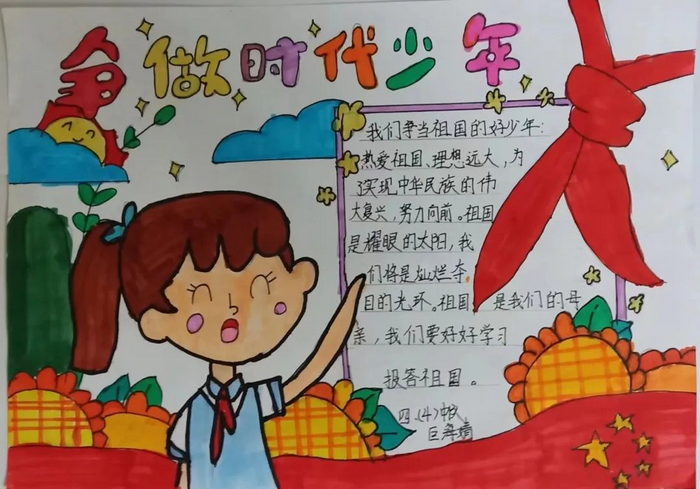 争做时代少年
我们争当祖国的好少年:
热爱祖国,理想远大,为
实现中华民族的伟
大复兴,努力向前。祖国
是耀眼的太阳,我
们将是灿烂夺
目的光环。祖国,是我们的母
亲,我们要好好学习
报答祖国。
四.(4)中队